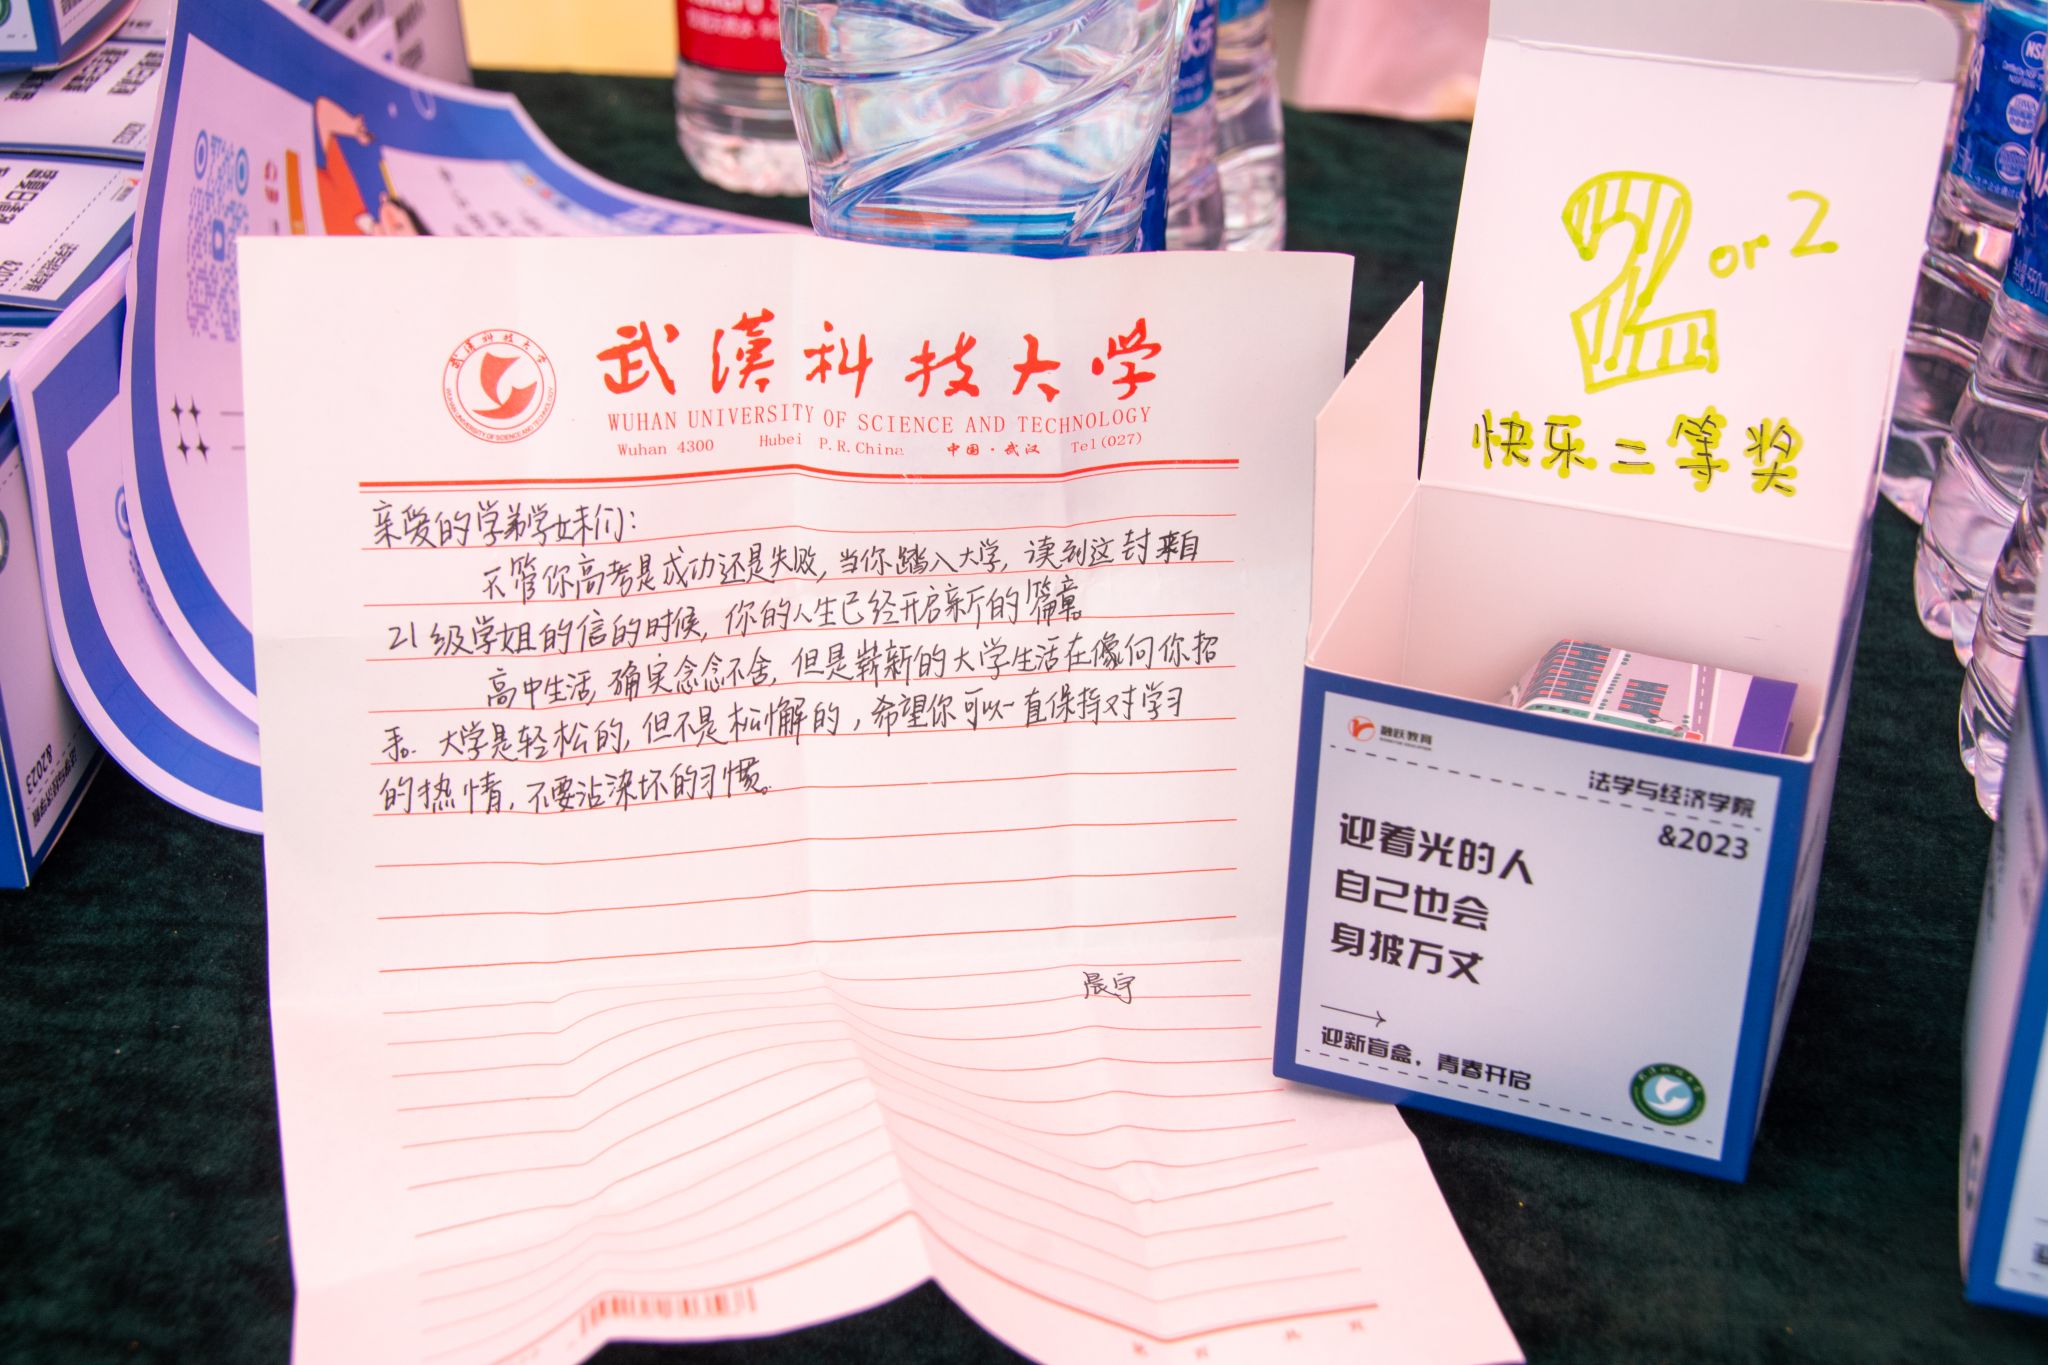 武漢科技大学
WUHAN UNIVERSITY OF SCIENCE AND TECHNOLOGY
Wuhan 4300 Hubei P.R.China 中国·武汉 Tel(027)
亲爱的学弟学妹们：
不管你高考是成功还是失败，当你踏入大学，读到这封来自
21级学姐的信的时候，你的人生已经开启新的篇章。
高中生活，确实念念不舍，但是崭新的大学生活在像向你招
手。大学是轻松的，但不是松懈的，希望你可以一直保持对学习
的热情，不要沾染坏的习惯。
晨宇
2 or 2
快乐二等奖
融跃教育
法学与经济学院
&2023
迎着光的人
自己也会
身披万丈
迎新盲盒，青春开启
&2023